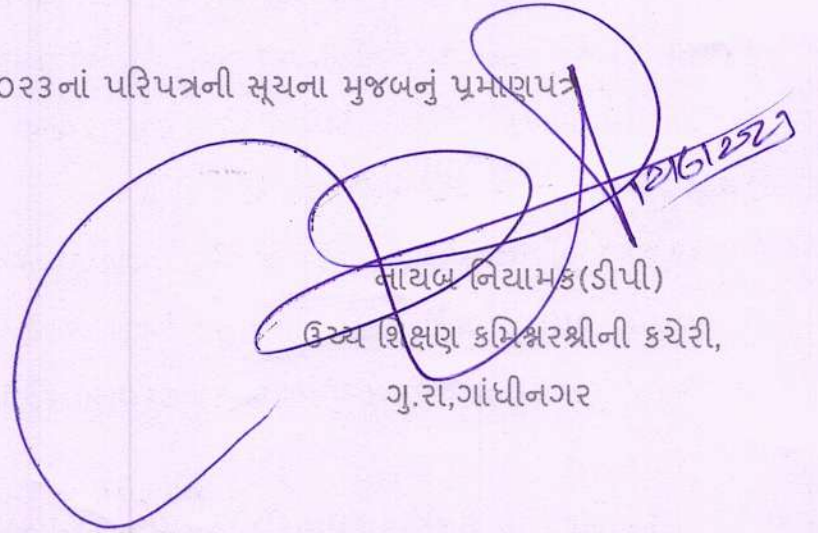 ૦૨૩નાં પરિપત્રની સૂચના મુજબનું પ્રમાણપત્ર
નાયબ નિયામક(ડીપી)
ઉચ્ચ શિક્ષણ કમિશ્નરશ્રીની કચેરી,
ગુ.રા,ગાંધીનગર